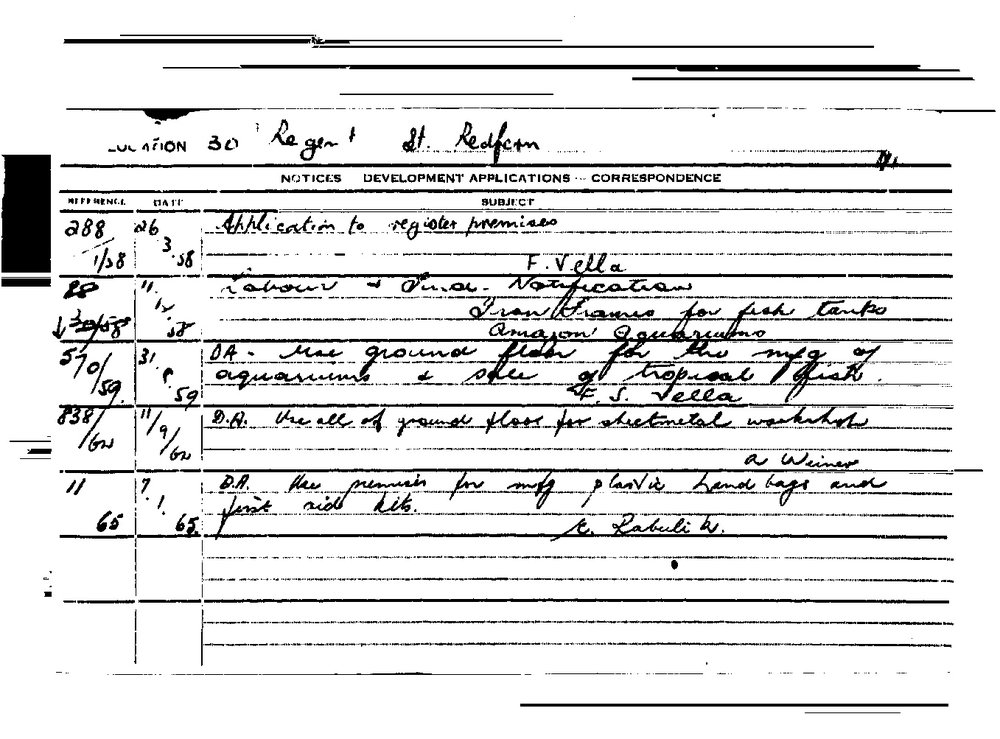 LOCATION 30 Regent St. Redfern
NOTICES DEVELOPMENT APPLICATIONS - CORRESPONDENCE
REFERENCE DATE SUBJECT
288 26 Application to register premises
1/58 3.58
F. Vella
88 11. Labour & Ind. Notification
30/58 12. Iron Frames for fish tanks
58 Amazon Aquariums
570 31. DA - Use ground floor for the mfg of
/59. 59 aquariums & sale of tropical fish.
F. S. Vella
838/ 11/9/ D.A. Use all of ground floor for sheetmetal workshop
A Weiner
11 7. D.A. Use premises for mfg plastic handbags and
1. first aid kits.
65 65. E.